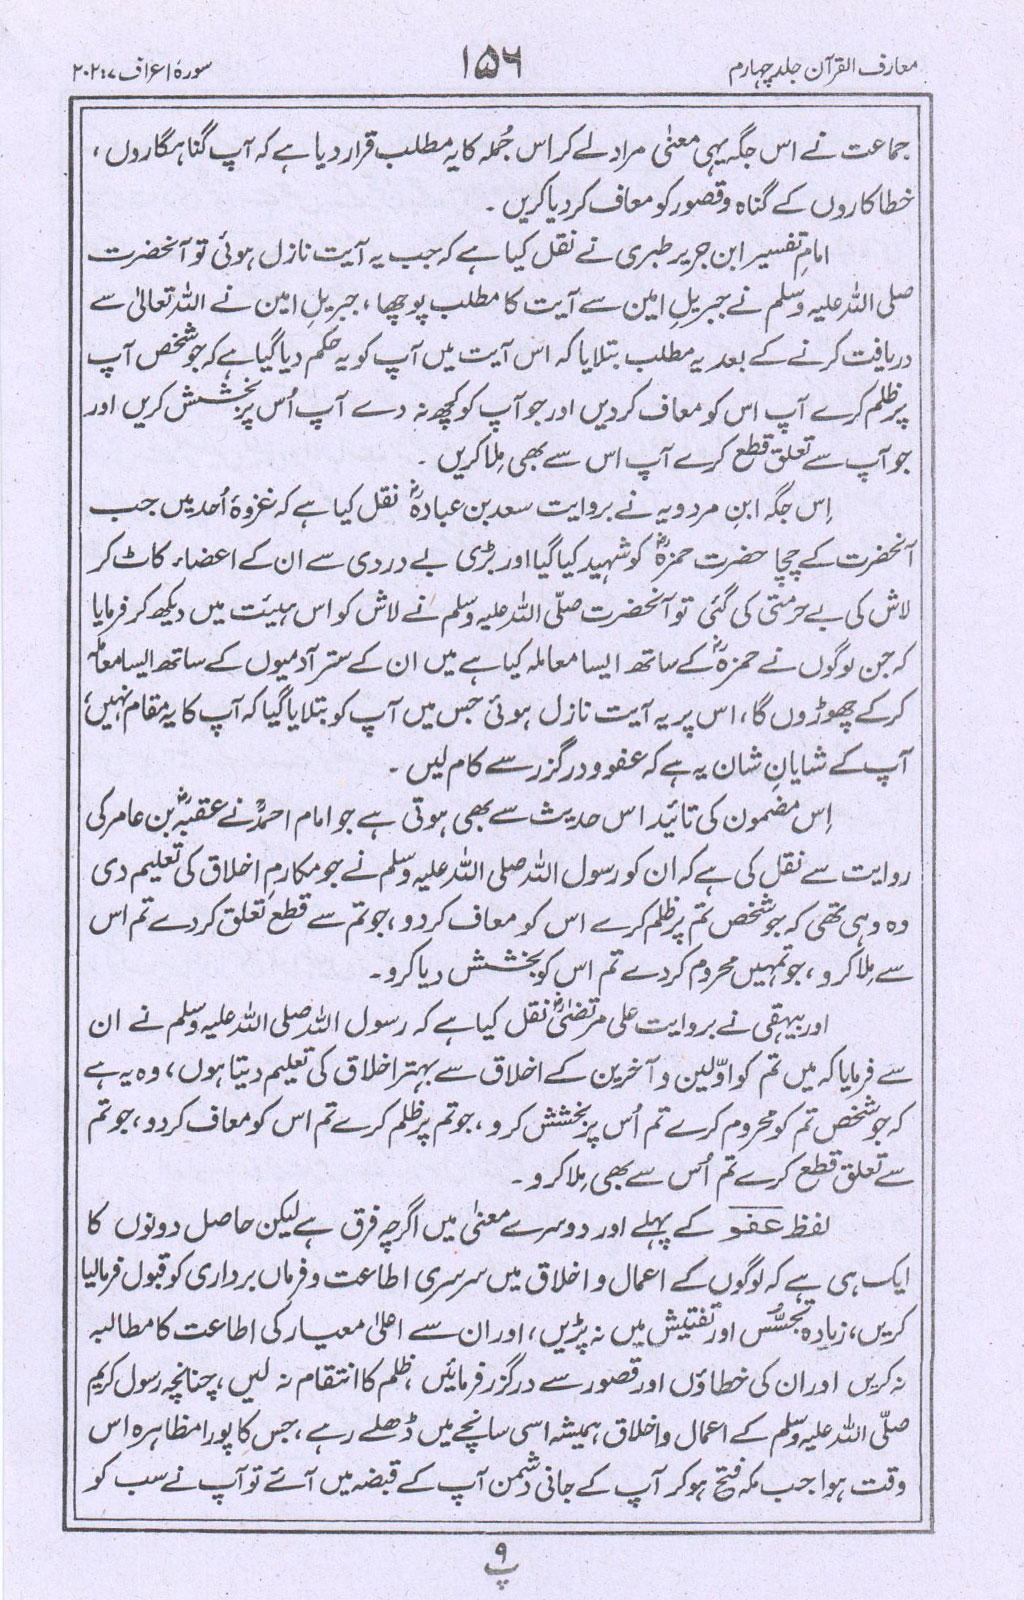 معارف القرآن جلد چہارم
۱۵۶
سورۂ اعراف ۷ : ۲۰۲
جماعت نے اس جگہ یہی معنیٰ مراد لے کر اس جُملہ کا یہ مطلب قرار دیا ہے کہ آپ گناہگاروں ،
خطاکاروں کے گناہ و قصور کو معاف کر دیا کریں ۔
امامِ تفسیر ابن جریر طبری نے نقل کیا ہے کہ جب یہ آیت نازل ہوئی تو آنحضرت
صلی اللہ علیہ وسلم نے جبریلِ امین سے آیت کا مطلب پوچھا ، جبریلِ امین نے اللہ تعالیٰ سے
دریافت کرنے کے بعد یہ مطلب بتلایا کہ اس آیت میں آپ کو یہ حکم دیا گیا ہے کہ جو شخص آپ
پر ظلم کرے آپ اس کو معاف کر دیں اور جو آپ کو کچھ نہ دے آپ اُس پر بخشش کریں اور
جو آپ سے تعلق قطع کرے آپ اس سے بھی مِلا کریں ۔
اِس جگہ ابنِ مردویہ نے بروایت سعد بن عبادہؓ نقل کیا ہے کہ غزوۂ اُحد میں جب
آنحضرت کے چچا حضرت حمزہؓ کو شہید کیا گیا اور بڑی بے دردی سے ان کے اعضاء کاٹ کر
لاش کی بے حرمتی کی گئی تو آنحضرت صلّی اللہ علیہ وسلم نے لاش کو اس ہیئت میں دیکھ کر فرمایا
کہ جن لوگوں نے حمزہؓ کے ساتھ ایسا معاملہ کیا ہے میں ان کے ستر آدمیوں کے ساتھ ایسا معاملہ
کر کے چھوڑوں گا ، اس پر یہ آیت نازل ہوئی جس میں آپ کو بتلایا گیا کہ آپ کا یہ مقام نہیں ،
آپ کے شایانِ شان یہ ہے کہ عفو و درگزر سے کام لیں ۔
اِس مضمون کی تائید اس حدیث سے بھی ہوتی ہے جو امام احمدؒ نے عقبہؓ بن عامر کی
روایت سے نقل کی ہے کہ ان کو رسول اللہ صلی اللہ علیہ وسلم نے جو مکارمِ اخلاق کی تعلیم دی
وہ وہی تھی کہ جو شخص تم پر ظلم کرے اس کو معاف کردو ، جو تم سے قطع تعلق کر دے تم اس
سے مِلا کرو ، جو تمہیں محروم کر دے تم اس کو بخشش دیا کرو ۔
اور بیہقی نے بروایت علی مرتضیٰؓ نقل کیا ہے کہ رسول اللہ صلی اللہ علیہ وسلم نے ان
سے فرمایا کہ میں تم کو اوّلین و آخرین کے اخلاق سے بہتر اخلاق کی تعلیم دیتا ہوں ، وہ یہ ہے
کہ جو شخص تم کو محروم کرے تم اُس پر بخشش کرو ، جو تم پر ظلم کرے تم اس کو معاف کر دو ، جو تم
سے تعلق قطع کرے تم اُس سے بھی مِلا کرو ۔
لفظ عفو کے پہلے اور دوسرے معنیٰ میں اگرچہ فرق ہے لیکن حاصل دونوں کا
ایک ہی ہے کہ لوگوں کے اعمال و اخلاق میں سرسری اطاعت و فرماں برداری کو قبول فرمالیا
کریں ، زیادہ تجسُّس اور تفتیش میں نہ پڑیں ، اور ان سے اعلیٰ معیار کی اطاعت کا مطالبہ
نہ کریں اور ان کی خطاؤں اور قصور سے درگزر فرمائیں ، ظلم کا انتقام نہ لیں ، چنانچہ رسول کریم
صلّی اللہ علیہ وسلم کے اعمال و اخلاق ہمیشہ اسی سانچے میں ڈھلے رہے ، جس کا پورا مظاہرہ اس
وقت ہوا جب مکہ فتح ہو کر آپ کے جانی دشمن آپ کے قبضہ میں آئے تو آپ نے سب کو
۹
پ